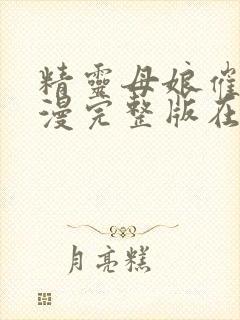 精靈母娘催
漫完整版在
月亮糕